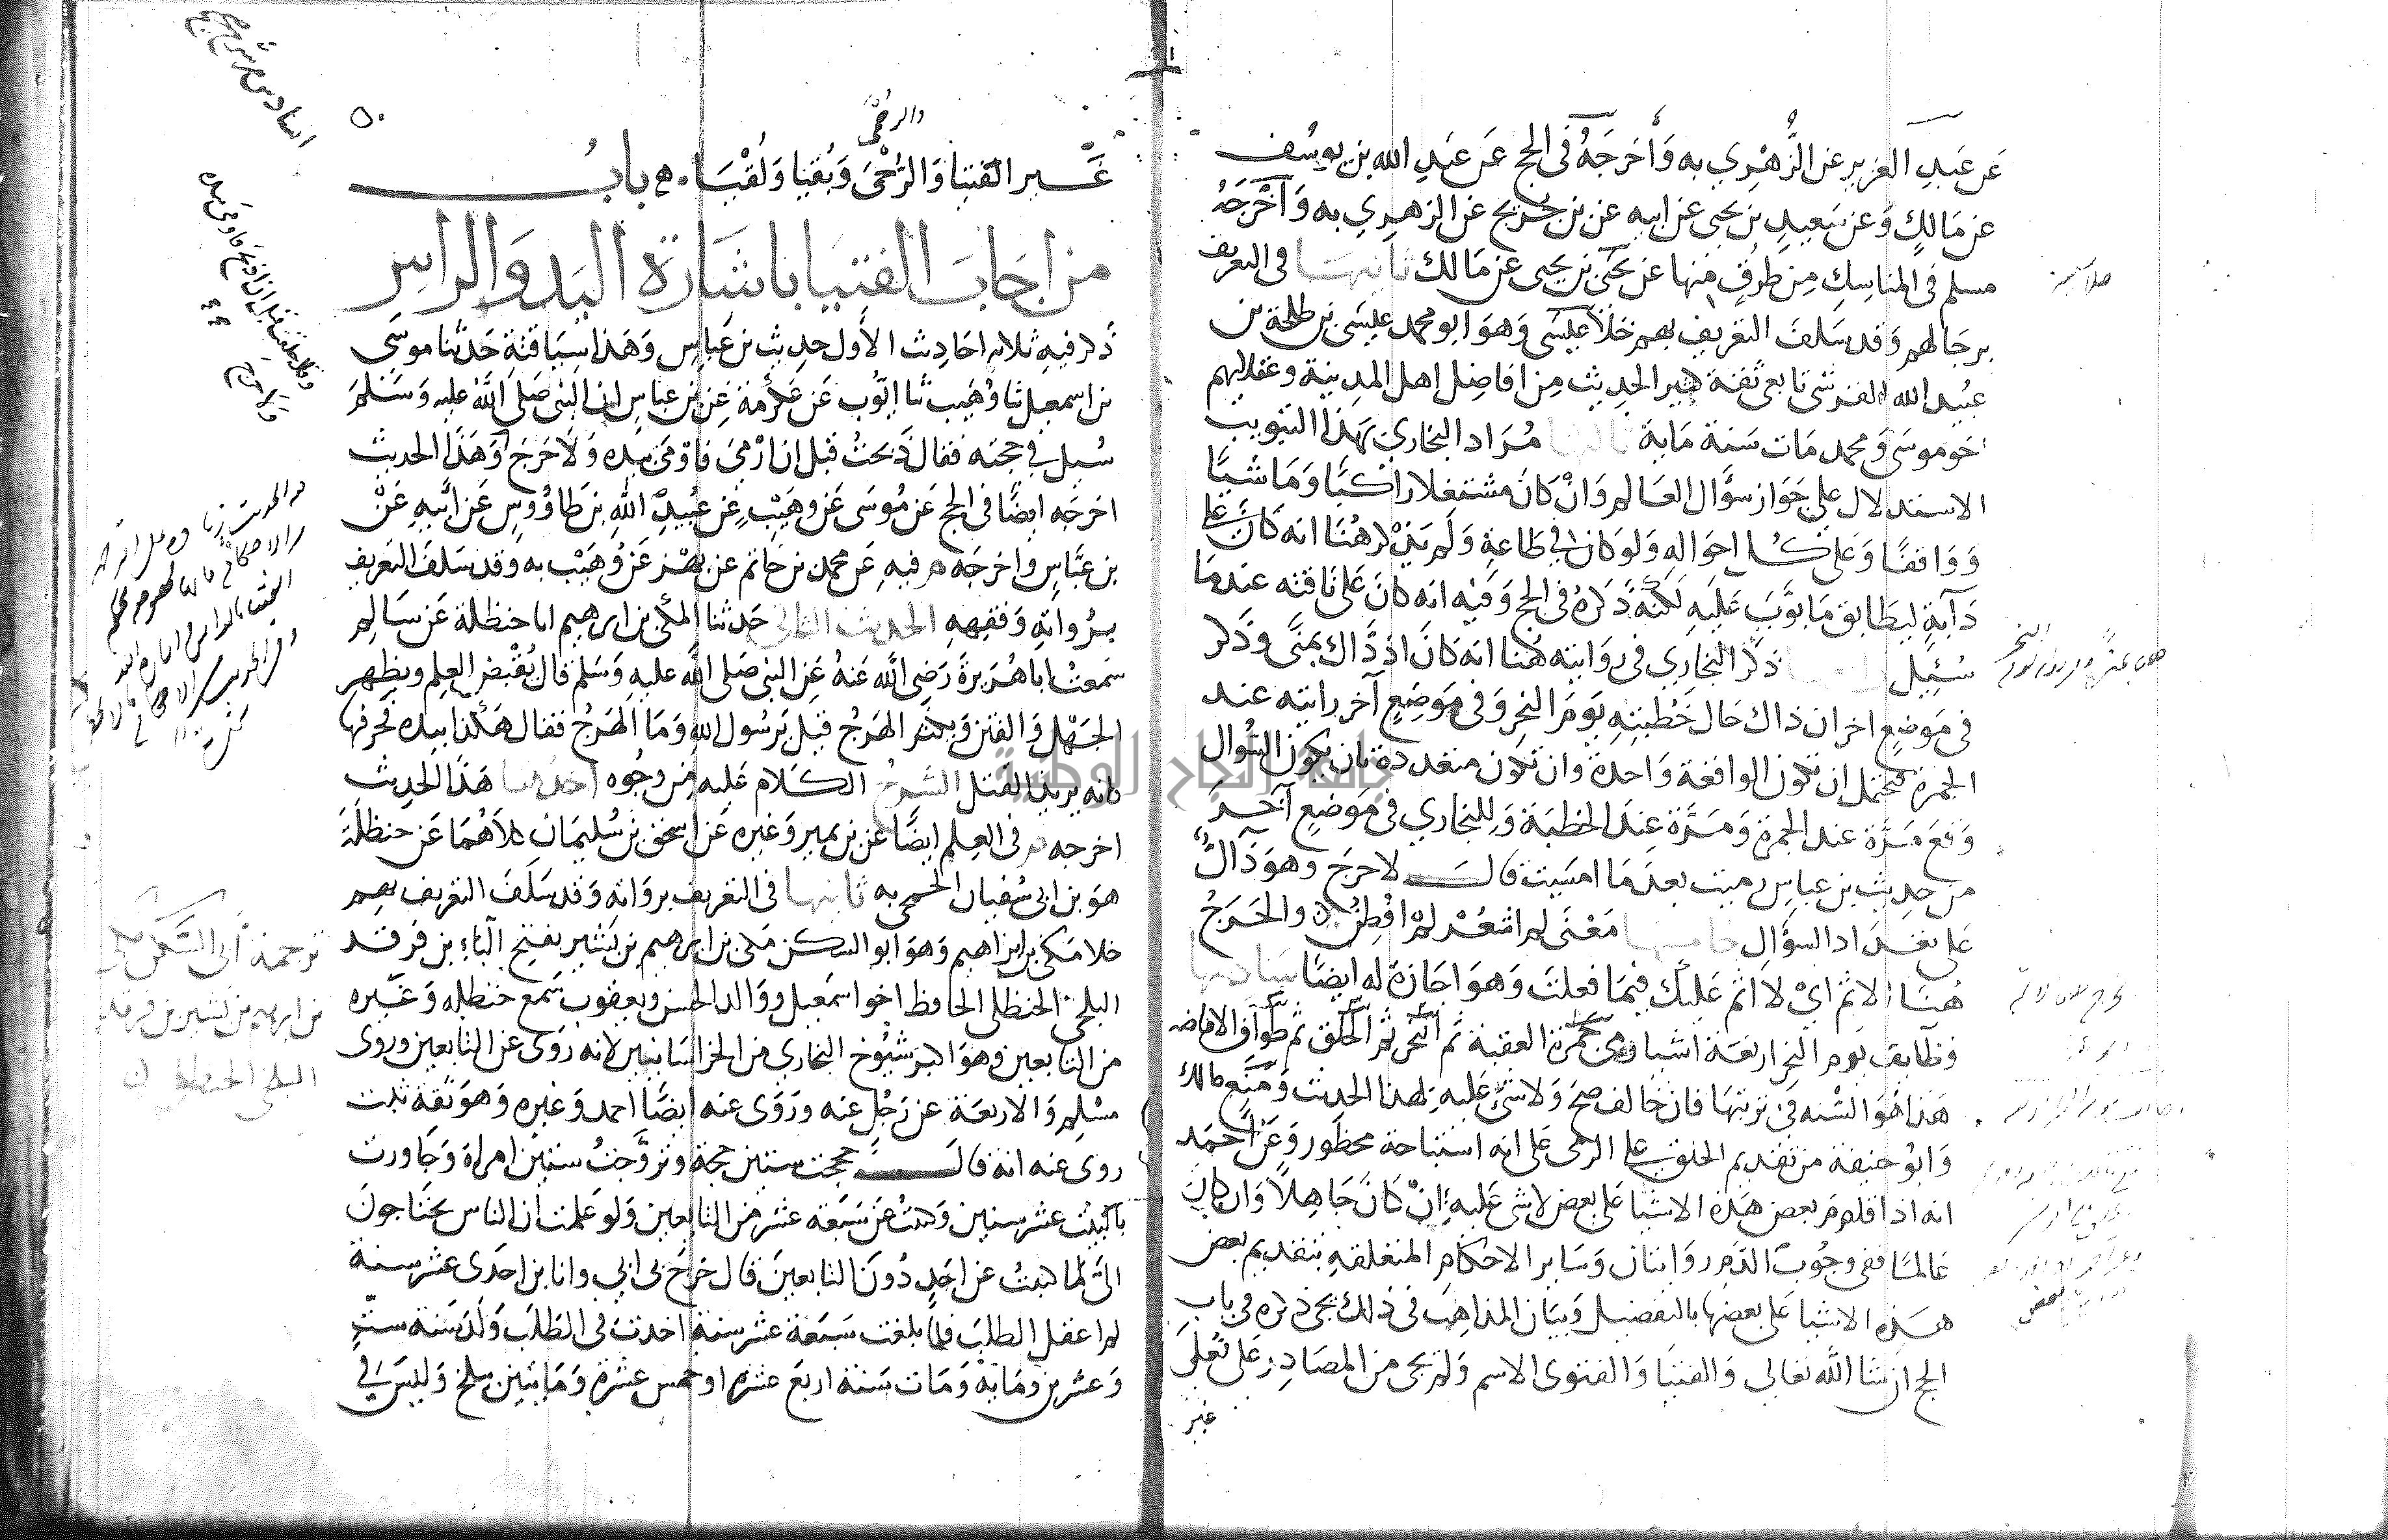 عَن عَبدِ العزيز عن الزُّهْرِي به وَأخرَجَهُ في الحج عَن عَبدِ الله بن يوسُف
عن مَالكٍ وَعن سَعيدِ بن يحيى عن ابيه عن بن جُريج عن الزهري به وَأخْرَجَهُ
مسلم في المناسِكِ مِن طرُقٍ منها عن يحيَى بن يحيى عن مَالك ثانيهَا في التعريف
برجالهم وَقد سَلفَ التعريف بهم خَلَا عيسَى وَهوَ ابو محمد عيسَى بن طلحة بن
عبُيد الله القرشى تابعى ثقة كثير الحديث مِن افاضِل اهل المدينة وعقلائهم
اخو موسَى ومحمد مَات سَنة مَاية ثالثها مُرَاد البخاري بهَذا التبويب
الاستدلال على جَواز سؤَال العَالم وَانْ كانَ مشتغلا راكبًا وَمَاشيًا
وَوَاقفًا وَعَلى كل احوَاله وَلو كان في طاعةٍ وَلم يذكر هُنَا انه كانَ على
دَآبةٍ ليطَابق مَا بوَّبَ عَليه لكنَّه ذكرَهُ في الحج وَفيه انه كانَ عَلى ناقته عندمَا
سُئِيل ذكَر البخاري في روَايته هُنا انه كانَ اذ ذاك بمنًى وذكر
في مَوضعٍ اخر ان ذاك حَال خُطبتِهِ يَومَ النحرِ وَفي مَوضعٍ آخر رايته عند
الجمرة فيحتمل ان تكون الواقعة وَاحدةً وان تكون متعددة بان يكون السُوال
وَقعَ مَرَّة عند الجمرة وَمَرَّة عند الخطبَة وَللبخاري في مَوضع آخَر
من حديث بن عباس رميت بعدَمَا امسَيت قال لا حرَج وهوَ ذَالٌّ
عَلى تعداد السؤَال خامسها مَعْنَى لم اشعُرْ لَمْ افطِنُ والحَرَجُ
هُنَا الاثم ايْ لا اثم عَليك فيمَا فعلتَ وَهوَ اجَازة له ايضًا سَادسها
وظايف يوم النحر اربَعَة اشيا رمي جَمرَة العقبة ثم النحر ثم الحَلق ثم طوَاف الافاضه
هَذا هُوَ السُّنه في ترتيبهَا فان خالف صحَّ وَلا شي عَليه لهذا الحديث وَمَنَعَ مالك
وَابُو حنيفة من تقديم الحلق على الرمى عَلى انه استباحة محظور وَعَن احمَد
انه اذا قدم بعض هَذه الاشيَا عَلى بعض لا شي عَليه إِنْ كَانَ جَاهِلًا وَان كانَ
عَالمًا ففى وجُوب الدَّم روَايتان وَسَاير الاحكام المتعلقه بتقديم بعض
هَذه الاشيا عَلى بعضها بالتفضيل وَبيَان المذاهب في ذلك يجي ذكره في باب
الحج ان شَا اللَّه تعَالى وَالفتيَا وَالفتوى الاسم وَلم يجي من المصَادِر عَلى فُعْلَى
غير
٥٠
والرُجْعَى
غَير الفتيَا وَالرُّجْعَى وَبُقيَا وَلُقْيَا ٠ بابُ
من اجَابَ الفتيَا باشَارَة اليَد وَالراس
ذكر فيه ثلاثه احَادِيث الأول حديث بن عَباسٍ وَهَذا سِيَاقتهُ حَدثنا موسَى
بن اسمعيل ثنا وُهَيب ثنا ايُّوب عَن عكرمَة عَن بن عباس ان النبى صَلى اللَّه عليه وَسَلمَ
سُيل في حجته فقال ذَبحتُ قبل ان ارْمىَ فاوْمَى بيده وَلا حَرَجَ وَهَذا الحديث
اخرجَه ايضًا في الحج عَن مُوسَى عَن وهَيْبٍ عَن عبُيد اللهِ بن طاوُوسٍ عَن ابيهِ عَنْ
بن عَبَّاسٍ واخرجَه م فيهِ عَن محمد بن حَاتم عن بَهْز عَن وُهَيْب به وقد سَلفَ التعريف
بِرُوَاتِهِ وَفقهِهِ الحديث الثانى حَدثنا المكى بن ابرهيم انا حنظلة عَن سَالِم
سَمعْتُ ابا هُرَيرَةَ رَضيَ اللَّه عَنهُ عَن النبى صَلى اللَّه عليهِ وَسَلم قال يُقْبَض العِلم ويظهر
الجَهْل وَالفتن وَيكثر الهَرْجُ قيل يَرسُول الله وَمَا الهَرْجُ فقال هَكذا بيده فحرفها
كانه يريد القتل الشرح الكَلام عَليه من وجُوه احدها هَذا الحديث
اخرجه م فى العِلم ايضًا عَن بن نمير وَغيره عَن اسحق بن سُليمَان كلاهُمَا عَن حنظلَةَ
هوَ بن ابى سُفيان الجمحى به ثانيها فى التعريف بروَاته وَقد سَلَفَ التعريف بهم
خلا مَكى بن ابرَاهيم وَهوَ ابو السكن مَكى بن ابرهيم بن بشير بفتح البَاءِ بن فرقد
البلخى الحنظلى الحَافظ اخو اسمَعيل ووَالد الحسَن ويعقوب سَمع حنظله وَغَيره
من التابعين وَهوَ اكبر شيُوخ البخارى من الخرَاسَانيين لانه روَى عن التابعين وروى
مسْلم وَالاربعَة عن رَجُل عنه وَرَوَى عنه ايضًا احمد وَغيره وَهوَ ثقة ثبت
روى عنه انهُ قالَ حججت ستين حجة وَتزوَّجتُ ستين امراة وَجَاورت
بالبيت عشر سنين وَكتبتُ عَن سَبعَة عشر من التابعين وَلو عَلمت ان الناس يحتاجونَ
الىَّ لما كتبتُ عن احَدٍ دُونَ التابعينَ قال خرجَ بى ابي وانا بن احدَى عشر سنة
لم اعقل الطلبَ فلمّا بلغت سَبعَة عشر سنة اخدتُ في الطلب وَلدَ سَنة ستٍّ
وَعشرين ومَاية وَمَات سَنة اربَع عشرة او خمس عشرة وَمَايتين ببلخ وَليسَ في
ترجمة أبى السَّكن مكى
بن ابرهيم بن بشير بن فرقد
البلخى الحنظلى